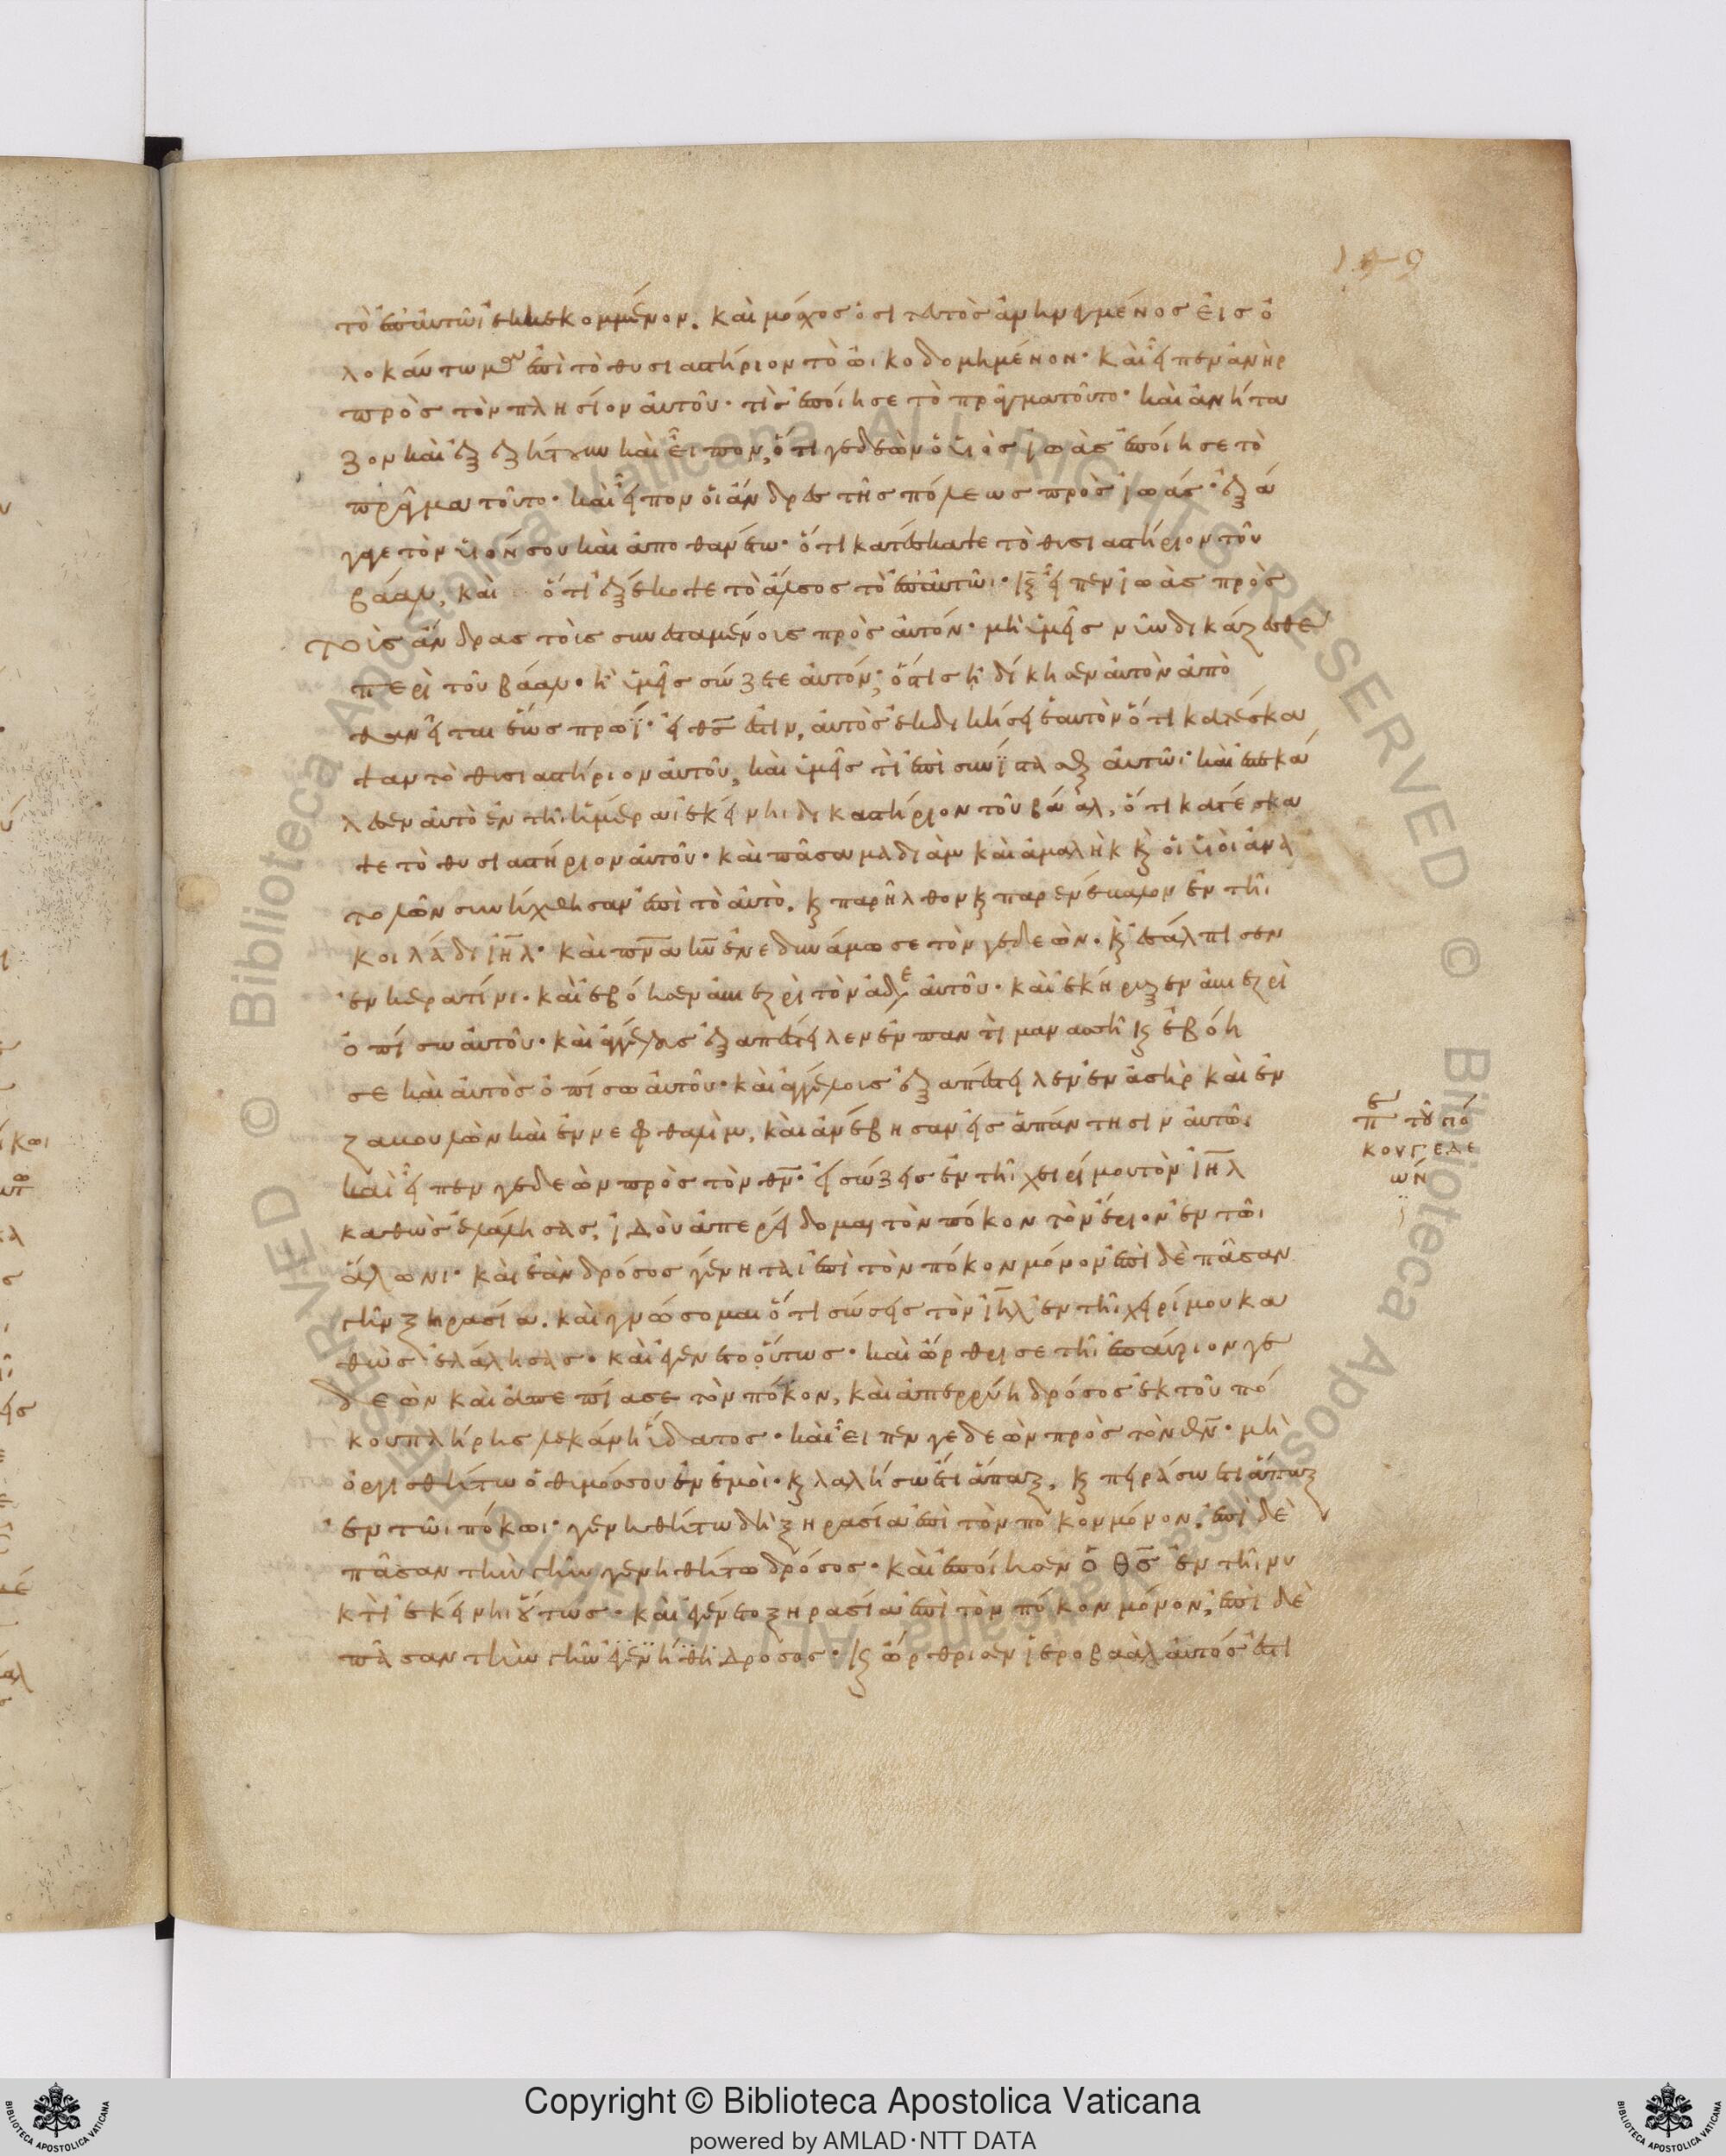 τὸ ἐπ' αὐτῶι ἐκκεκομμένον. καὶ μόσχος ὁ σιτευτὸς ἀνηνεγμένος εἰς ὁ
λοκαύτωμα ἐπὶ τὸ θυσιαστήριον τὸ ὠικοδομημένον· καὶ εἶπεν ἀνὴρ
πρὸς τὸν πλησίον αὐτοῦ· τίς ἐποίησε τὸ πρᾶγμα τοῦτο· καὶ ἀνήτα
ζον καὶ ἐξεζήτουν καὶ εἶπον, ὅτι γεδεὼν ὁ υἱὸς ἰωὰς ἐποίησε τὸ
πρᾶγμα τοῦτο· καὶ εἶπον οἱ ἄνδρες τῆς πόλεως πρὸς ἰωάς· ἐξά
γαγε τὸν υἱόν σου καὶ ἀποθανέτω· ὅτι κατέσκαψε τὸ θυσιαστήριον τοῦ
βάαλ, καὶ ὅτι ἐξέκοψε τὸ ἄλσος τὸ ἐπ' αὐτῶι· κ εἶπεν ἰωὰς πρὸς
τοὺς ἄνδρας τοῖς συνισταμένοις πρὸς αὐτόν· μὴ ὑμεῖς νῦν δικάζεσθε
περὶ τοῦ βάαλ· ἢ ὑμεῖς σώζετε αὐτόν; ὅστις ἠδίκησεν αὐτὸν ἀπο
θανεῖται ἕως πρωΐ· εἰ θς ἐστιν, αὐτὸς ἐκδικήσει ἑαυτὸν ὅτι κατέσκα
ψαν τὸ θυσιαστήριον αὐτοῦ, καὶ ὑμεῖς τί ἐπισυνΐσταλαξ αὐτῶι· καὶ ἐκά
λεσεν αὐτὸ ἐν τῆι ἡμέραι ἐκείνηι δικαστήριον τοῦ βάαλ, ὅτι κατέσκα
ψε τὸ θυσιαστήριον αὐτοῦ· καὶ πᾶσα μαδιὰμ καὶ ἀμαλὴκ κ οἱ υἱοὶ ἀνα
τολῶν συνήχθησαν ἐπὶ τὸ αὐτὸ. κ παρῆλθον κ παρενέβαλον ἐν τῆι
κοιλάδι ιηλ· καὶ πνα κυ ἐνεδυνάμωσε τὸν γεδεὼν· κ ἐσάλπισεν
ἐν κερατίνι· καὶ ἐβόησεν ἀβιεζρὶ τὸν ἀδε αὐτοῦ· καὶ ἐκήρυξεν ἀβιεζρὶ
ὀπίσω αὐτοῦ· καὶ ἀγγέλους ἐξαπέστειλεν ἐν παντὶ μανασσῆ κ ἐβόη
σε καὶ αὐτὸς ὀπίσω αὐτοῦ· καὶ ἀγγέλοις ἐξαπέστειλεν ἐν ἀσὴρ καὶ ἐν
ζαβουλὼν καὶ ἐν νεφθαλὶμ, καὶ ἀνέβησαν εἰς ἀπάντησιν αὐτῶ·
καὶ εἶπεν γεδεὼν πρὸς τὸν θν· εἰ σώζεις ἐν τῆι χειρί μου τὸν ιηλ
καθὼς ἐλάλησας, ἰδοὺ ἀπερείδομαι τὸν πόκον τὸν ἔριον ἐν τῶι
ἅλωνι· καὶ ἐὰν δρόσος γένηται ἐπὶ τὸν πόκον μόνον ἐπὶ δὲ πᾶσαν
γῆν ξηρασία. καὶ γνώσομαι ὅτι σώσεις τὸν ιηλ ἐν τῆι χειρί μου κα
θὼς ἐλάλησας· καὶ ἐγένετο οὕτως· καὶ ὤρθρισε τῆι ἐπαύριον γε
δεὼν καὶ ἀπεπίασε τὸν πόκον, καὶ ἀπερρύη δρόσος ἐκ τοῦ πό
κου πλήρης λεκάνη ὕδατος· καὶ εἶπεν γεδεὼν πρὸς τὸν θν· μὴ
ὀργισθήτω ὁ θυμός σου ἐν ἐμοὶ· κ λαλήσω ἔτι ἅπαξ, κ πειράσω ἔτι ἅπαξ
ἐν τῶι πόκωι· γενηθήτω δὴ ξηρασία ἐπὶ τὸν πόκον μόνον, ἐπὶ δὲ
πᾶσαν τὴν γῆν γενηθήτω δρόσος· καὶ ἐποίησεν ὁ θς ἐν τῆι νυ
κτὶ ἐκείνηι οὕτως· καὶ ἐγένετο ξηρασία ἐπὶ τὸν πόκον μόνον, ἐπὶ δὲ
πᾶσαν τὴν γῆν ἐγενήθη δρόσος· κ ὤρθρισεν ἱεροβαὰλ αὐτός ἐστι
πε τοῦ πό
κου γεδε
ών
Copyright © Biblioteca Apostolica Vaticana
powered by AMLAD·NTT DATA